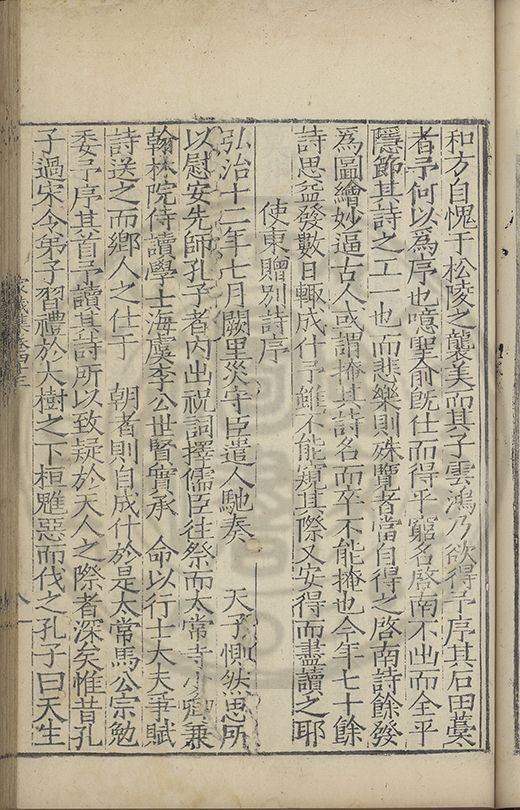 和方自愧于松陵之襲美而其子雲鴻乃欲得予序其石田藁
者予何以爲序也噫聖俞旣仕而得乎窮名啓南不出而全乎
隱節其詩之工一也而悲樂則殊覽者當自得之啓南詩餘發
爲圖繪妙逼古人或謂掩其詩名而卒不能掩也今年七十餘
詩思益發數日輙成什予雖不能窺其際又安得而盡讀之耶
使東贈別詩序
弘治十二年七月闕里災守臣遣人馳奏 天子惻然思所
以慰安先師孔子者內出祝詞擇儒臣往祭而太常寺少卿兼
翰林院侍讀學士海虞李公世賢實承 命以行士大夫爭賦
詩送之而鄉人之仕于 朝者則自成什於是太常馬公宗勉
委予序其首予讀其詩所以致疑於天人之際者深矣惟昔孔
子過宋令弟子習禮於大樹之下桓魋惡而伐之孔子曰天生